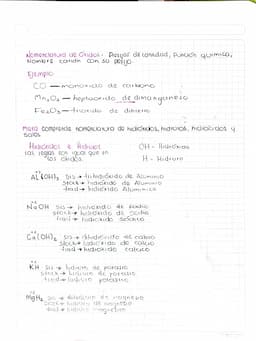 Nomenclatura de Óxidos:
Nombre común con su prefijo.
Ejemplo
CO — monóxido de carbono
Mn₂O₇ — heptaoxido de dimanganeso
Fe₂O₃ — trioxido de dihierro
Meta comprende nomenclatura de hidróxidos, hidruros, y
sales
Hidróxidos e Hidruros OH - Hidróxidos
Las reglas son igual que en H - Hidruro
los óxidos.
AL(OH)₃ sis → trihidróxido de Aluminio
stock → hidróxido de Aluminio
trad → hidróxido Aluminico
NaOH sis → hidróxido de sodio
stock → hidróxido de sodio
trad → hidróxido sódico
Ca(OH)₂ sis → dihidróxido de calcio
stock → hidróxido de calcio
trad → hidróxido calcico
KH sis → hidruro de potasio
stock → hidruro de potasio
trad → hidruro potasico
MgH₂ sis → dihidruro de magnesio
stock → hidruro de magnesio
trad → hidruro magnesico